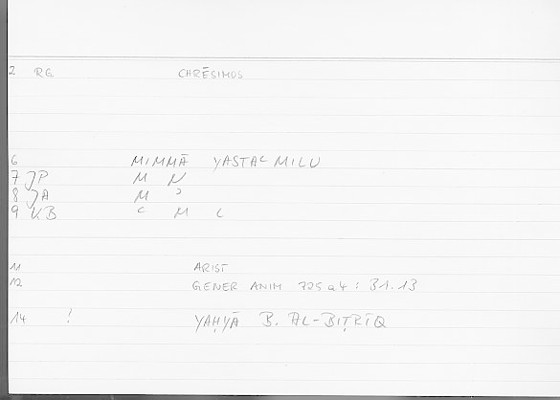 2 RG CHRĒSIMOS
6 MIMMĀ YASTAʿMILU
7 JP M N
8 JA M ʾ
9 KB ʿ M L
11 ARIST
12 GENER ANIM 725a4 : 31.13
14 ! YAḤYĀ B. AL-BIṬRĪQ